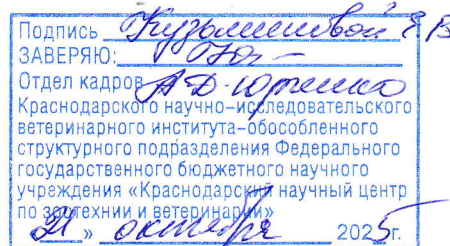 Подпись Кузьминовой Е В
ЗАВЕРЯЮ:
Отдел кадров А.Д. Юрченко
Краснодарского научно-исследовательского
ветеринарного института-обособленного
структурного подразделения Федерального
государственного бюджетного научного
учреждения «Краснодарский научный центр
по зоотехнии и ветеринарии»
21 » октября 2025г.